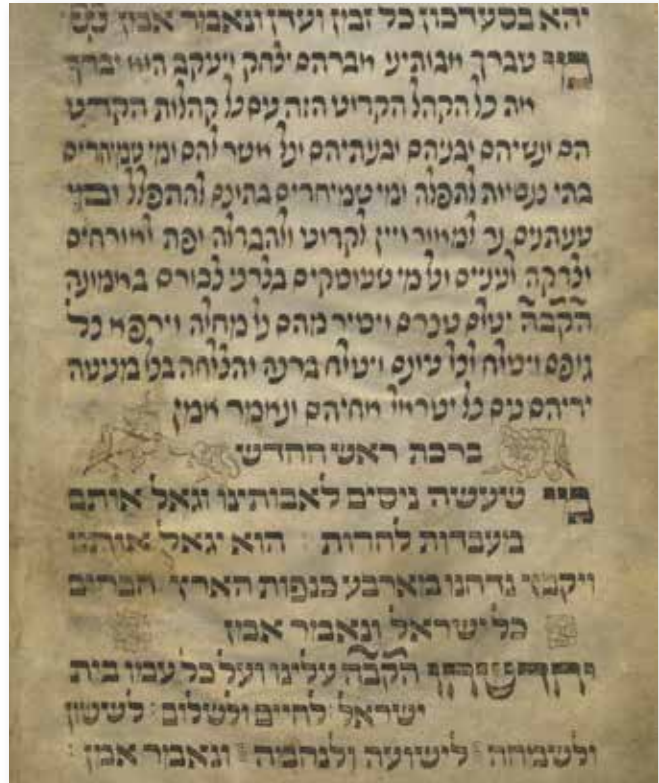 יהא בסעדכון כל זמן ועדן ונאמר אמן
מי שברך אבותינו אברהם יצחק ויעקב הוא יברך
את כל הקהל הקדוש הזה עם כל קהלות הקדש
הם ונשיהם ובניהם ובנותיהם וכל אשר להם ומי שמיחדים
בתי כנסיות לתפלה ומי שמיחדים בתוכם להתפלל
שנותנים נר למאור ויין לקדוש ולהבדלה ופת לאורחים
וצדקה לעניים וכל מי שעוסקים בצרכי צבורם באמונה
הקבה ישלם שכרם ויסיר מהם כל מחלה וירפא כל
גופם ויסלח לכל עונם וישלח ברכה והצלחה בכל מעשה
ידיהם עם כל ישראל אחיהם ונאמר אמן
ברכת ראש החדש
מי שעשה ניסים לאבותינו וגאל אותם
מעבדות לחרות : הוא יגאל אותנו
ויקבץ נדחנו מארבע כנפות הארץ חברים
כל ישראל ונאמר אמן
יחדשהו הקבה עלינו ועל כל עמו בית
ישראל לחיים ולשלום : לששון
ולשמחה : לישועה ולנחמה : ונאמר אמן :